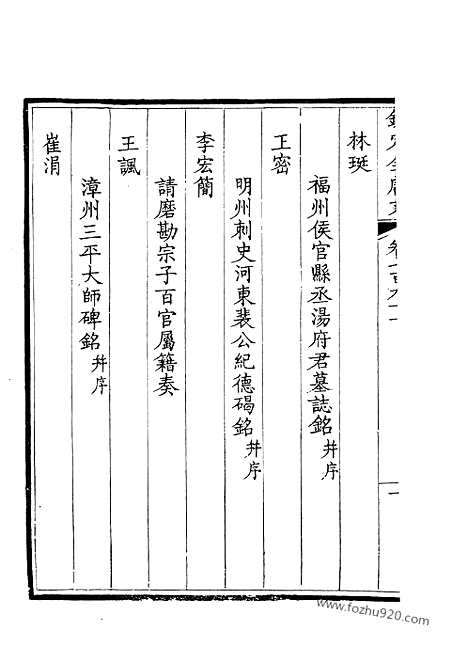 欽定全唐文 卷七百九十一 一
林珽
福州侯官縣丞湯府君墓誌銘 幷序
王密
明州刺史河東裴公紀德碣銘 幷序
李宏簡
請磨勘宗子百官屬籍奏
王諷
漳州三平大師碑銘 幷序
崔涓
www.fozhu920.com